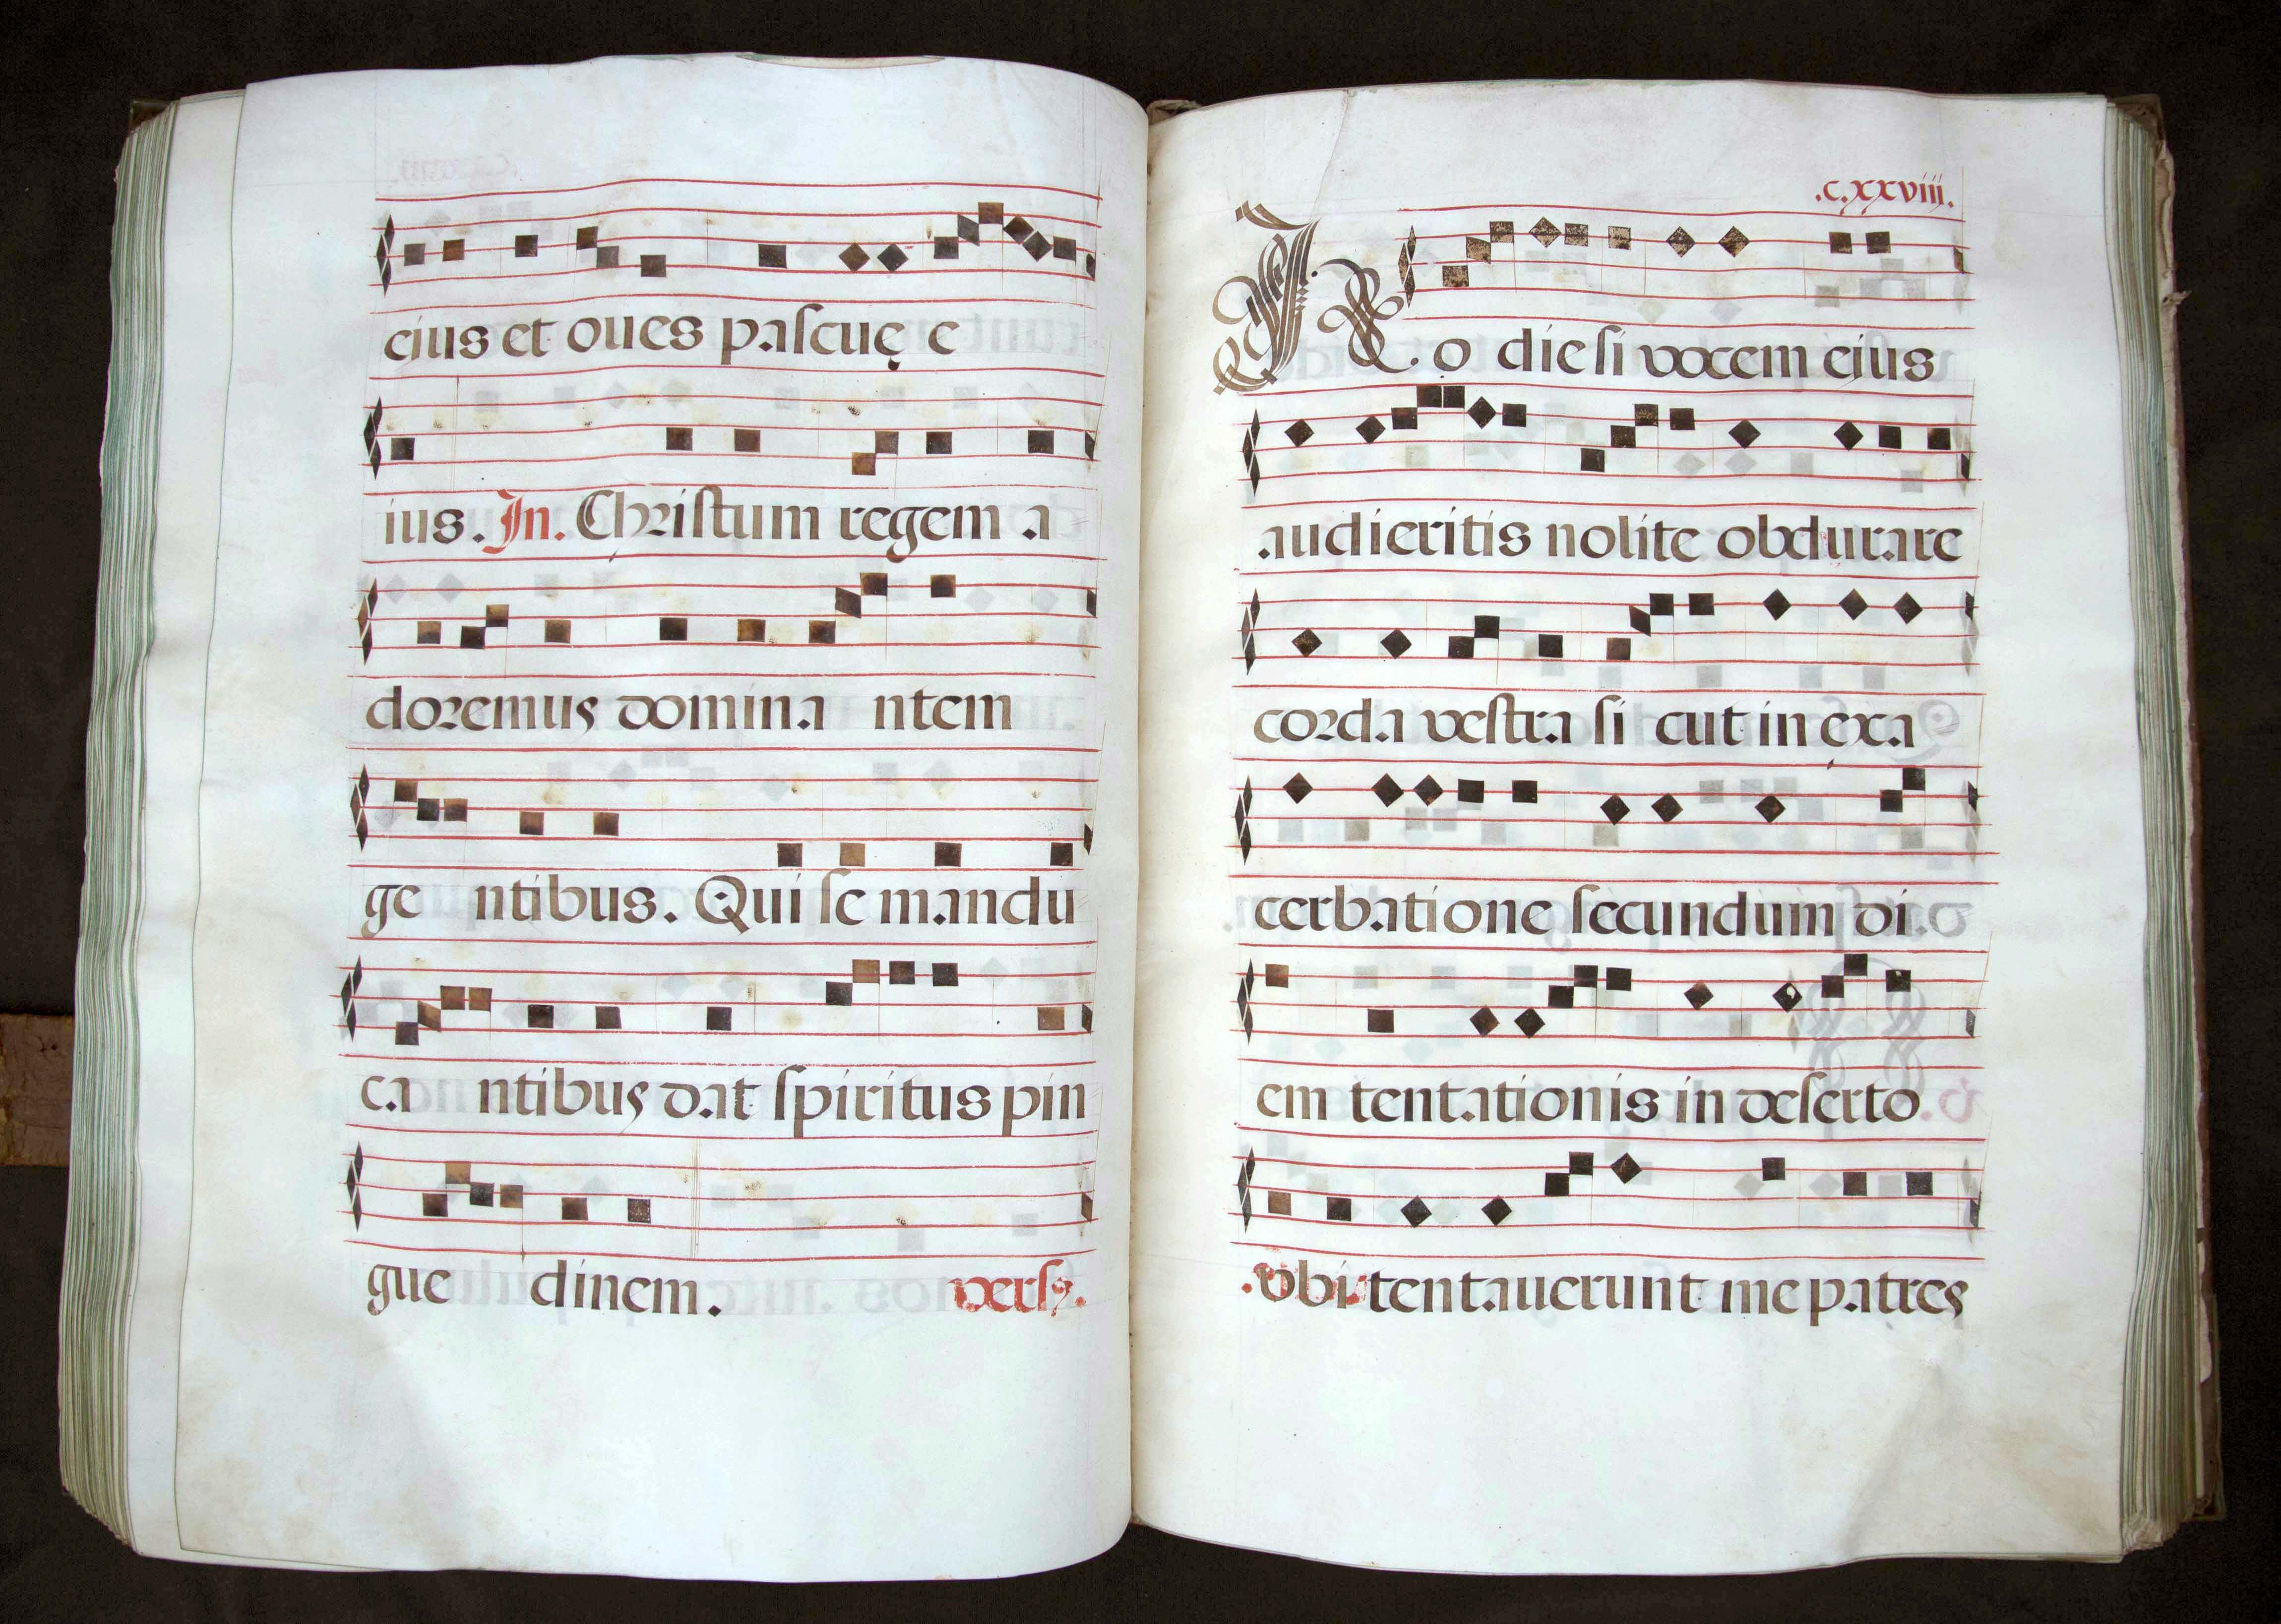 eius et oues paſcuę e
ius. In. Chriſtum regem a
doremus domina ntem
ge ntibus. Qui ſe mandu
ca ntibus dat ſpiritus pin
gue dinem. verſ9.
.c.xxviii.
H o die ſi vocem eius
audieritis nolite obdurare
corda veſtra ſi cut in exa
cerbatione ſecundum di
em tentationis in deſerto
vbi tentauerunt me patres